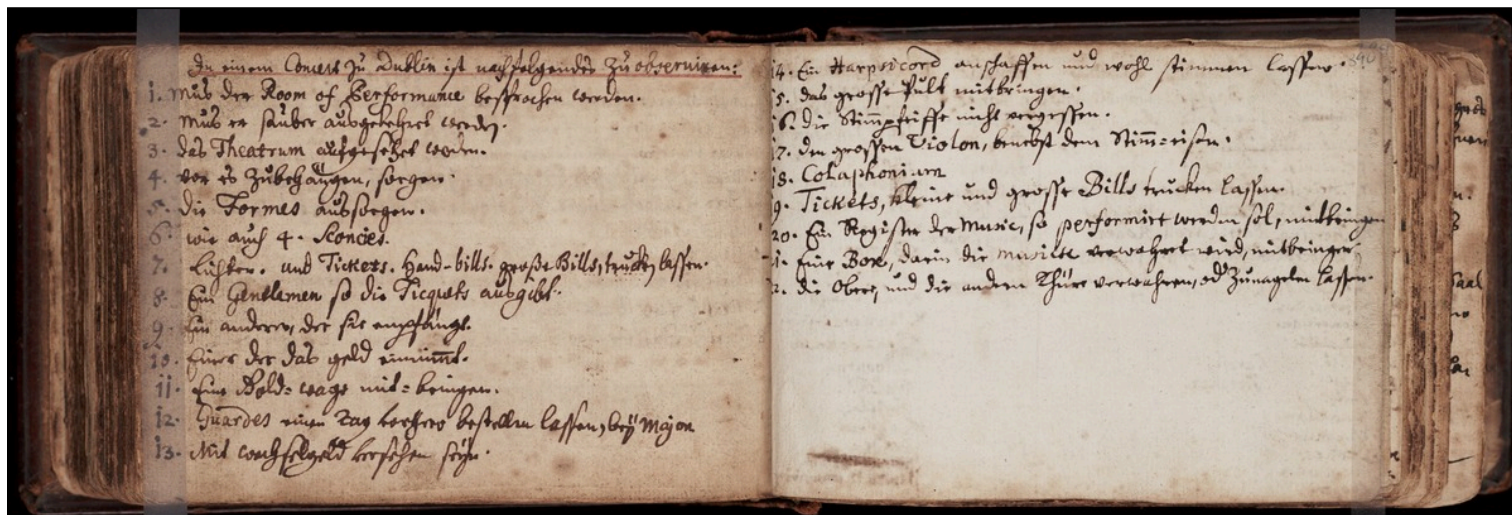 In einem Concert zu Dublin ist nachfolgendes zu observiren:
1. Mus der Room of Performance besprochen werden.
2. Mus er sauber ausgekehret werden.
3. Das Theatrum aufgesetzet werden.
4. vor es zubehängen, sorgen.
5. die Formes aussorgen.
6. wie auch 4. Sconces.
7. Lichter. und Tickets. Hand-bills. große Bills, trucken lassen.
8. Ein Gentlemen so die Ticquets ausgibt.
9. Ein anderer, der sie empfängt.
10. Einer der das geld einnimt.
11. Eine Gold=wage mit=bringen.
12. Guardes einen Tag vorhero bestellen lassen, bey Major
13. Mit wechselgeld versehen seyn.
14. Ein Harpsicord anschaffen und wohl stimmen lassen.
15. das grosse Pult mitbringen.
16. die Stimpfeiffe nicht vergessen.
17. den grossen Violon, benebst dem Stim=eisen.
18. Colaphonium
19. Tickets, kleine und grosse Bills trucken lassen.
20. Ein Register der Music, so performirt werden sol, mitbringen
21. Eine Box, darin die Musicke verwahret wird, mitbringen.
22. die Obere, und die andern Thüre verwahren, od zunageln lassen.